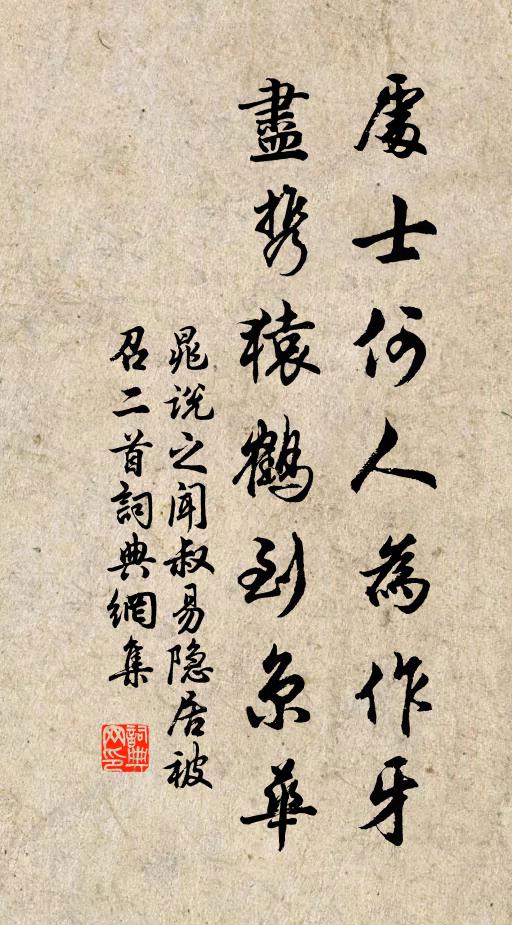 處士何人為作牙
盡携猿鶴到京華
晁説之闻叔易隐居被
召二首詞典網集
詞典网印